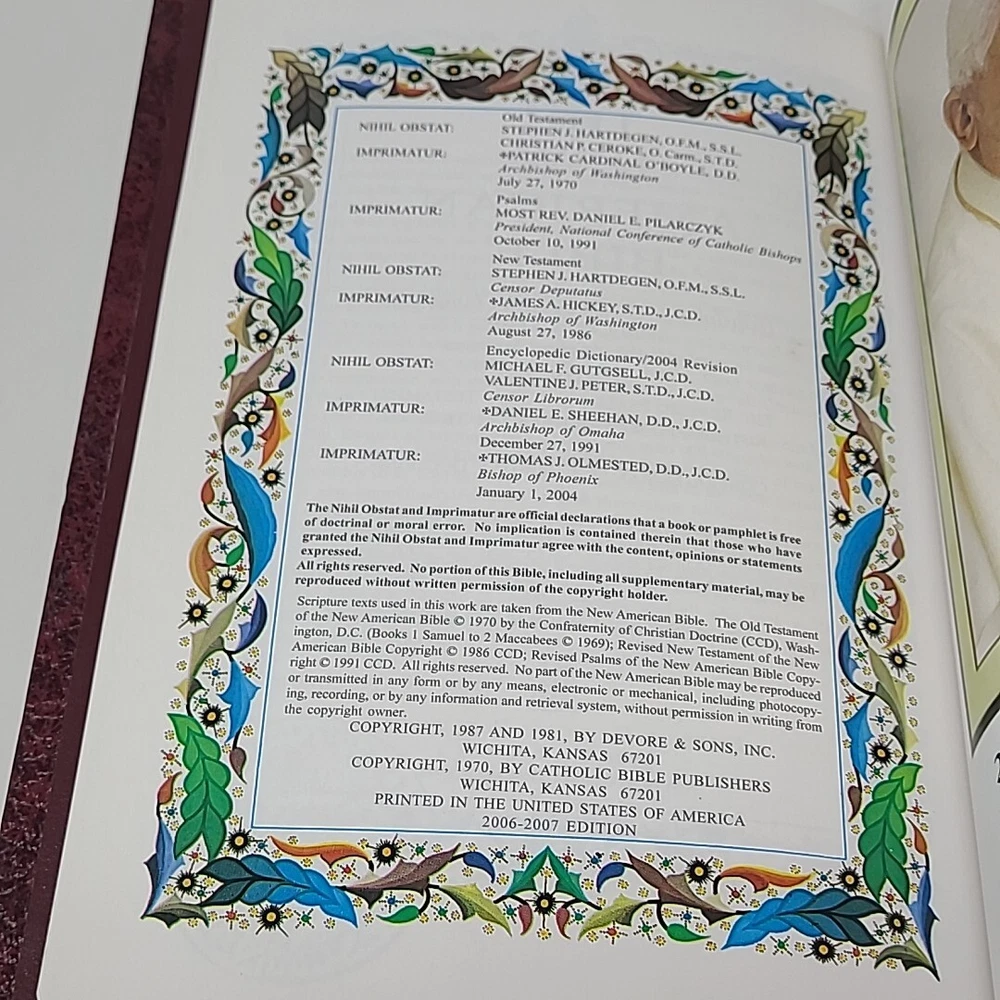 Old Testament
NIHIL OBSTAT: STEPHEN J. HARTDEGEN, O.F.M., S.S.L.
CHRISTIAN P. CEROKE, O. Carm., S.T.D.
IMPRIMATUR: ✠PATRICK CARDINAL O'BOYLE, D.D.
Archbishop of Washington
July 27, 1970
Psalms
IMPRIMATUR: MOST REV. DANIEL E. PILARCZYK
President, National Conference of Catholic Bishops
October 10, 1991
New Testament
NIHIL OBSTAT: STEPHEN J. HARTDEGEN, O.F.M., S.S.L.
Censor Deputatus
IMPRIMATUR: ✠JAMES A. HICKEY, S.T.D., J.C.D.
Archbishop of Washington
August 27, 1986
Encyclopedic Dictionary/2004 Revision
NIHIL OBSTAT: MICHAEL F. GUTGSELL, J.C.D.
VALENTINE J. PETER, S.T.D., J.C.D.
Censor Librorum
IMPRIMATUR: ✠DANIEL E. SHEEHAN, D.D., J.C.D.
Archbishop of Omaha
December 27, 1991
IMPRIMATUR: ✠THOMAS J. OLMESTED, D.D., J.C.D.
Bishop of Phoenix
January 1, 2004
The Nihil Obstat and Imprimatur are official declarations that a book or pamphlet is free
of doctrinal or moral error. No implication is contained therein that those who have
granted the Nihil Obstat and Imprimatur agree with the content, opinions or statements
expressed.
All rights reserved. No portion of this Bible, including all supplementary material, may be
reproduced without written permission of the copyright holder.
Scripture texts used in this work are taken from the New American Bible. The Old Testament
of the New American Bible © 1970 by the Confraternity of Christian Doctrine (CCD), Wash-
ington, D.C. (Books 1 Samuel to 2 Maccabees © 1969); Revised New Testament of the New
American Bible Copyright © 1986 CCD; Revised Psalms of the New American Bible Copy-
right © 1991 CCD. All rights reserved. No part of the New American Bible may be reproduced
or transmitted in any form or by any means, electronic or mechanical, including photocopy-
ing, recording, or by any information and retrieval system, without permission in writing from
the copyright owner.
COPYRIGHT, 1987 AND 1981, BY DEVORE & SONS, INC.
WICHITA, KANSAS 67201
COPYRIGHT, 1970, BY CATHOLIC BIBLE PUBLISHERS
WICHITA, KANSAS 67201
PRINTED IN THE UNITED STATES OF AMERICA
2006-2007 EDITION